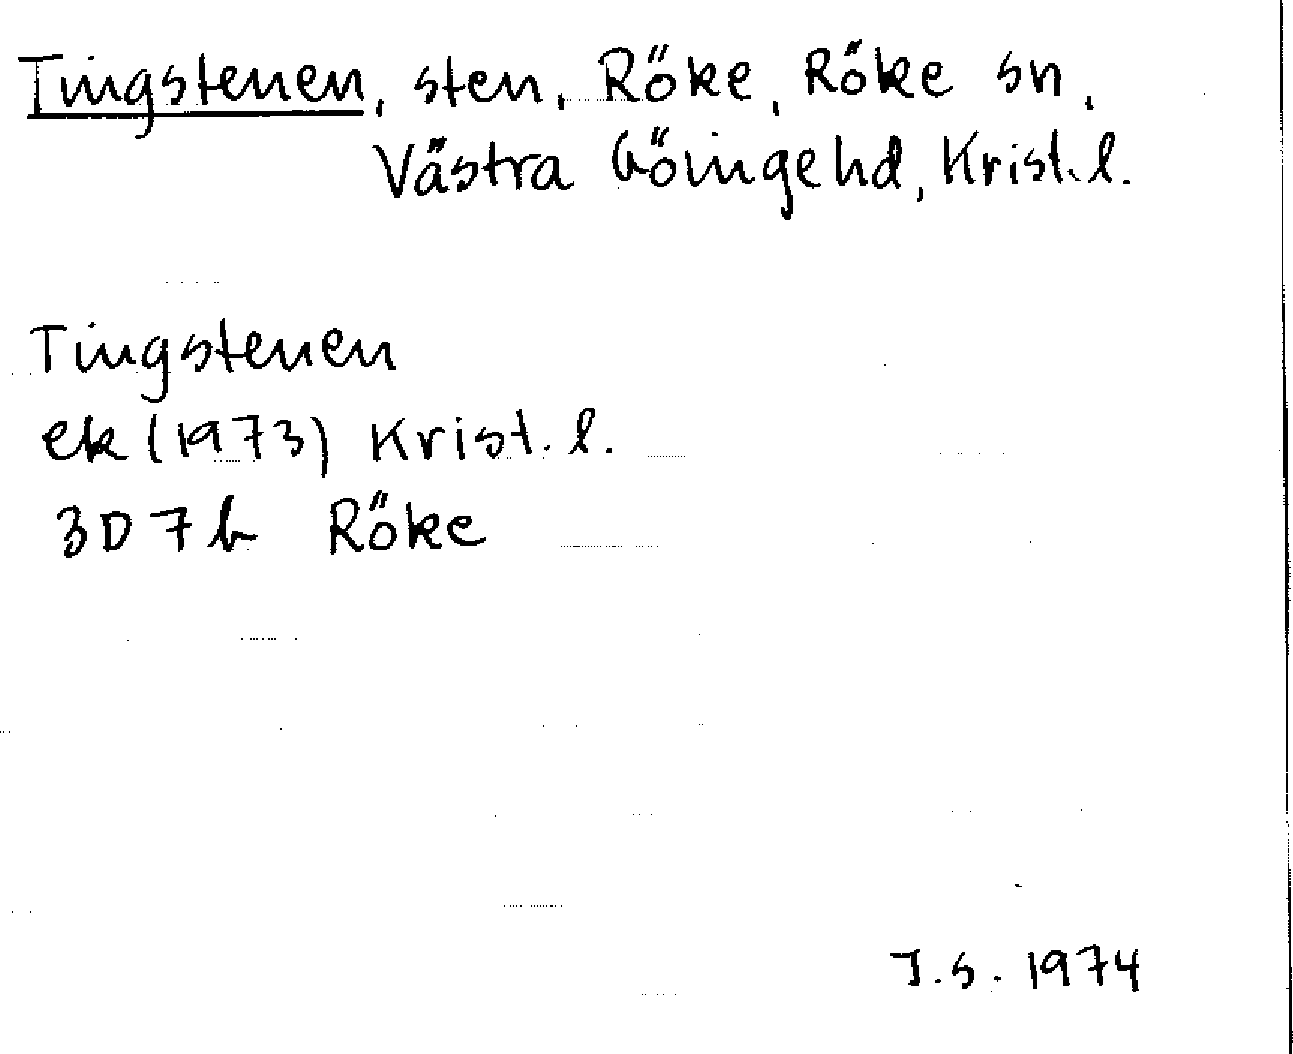 Tingstenen, sten, Röke, Röke sn,
Västra Göingehd, Krist.l.
Tingstenen
ek (1973) Krist. l.
3D 7b Röke
J.S. 1974